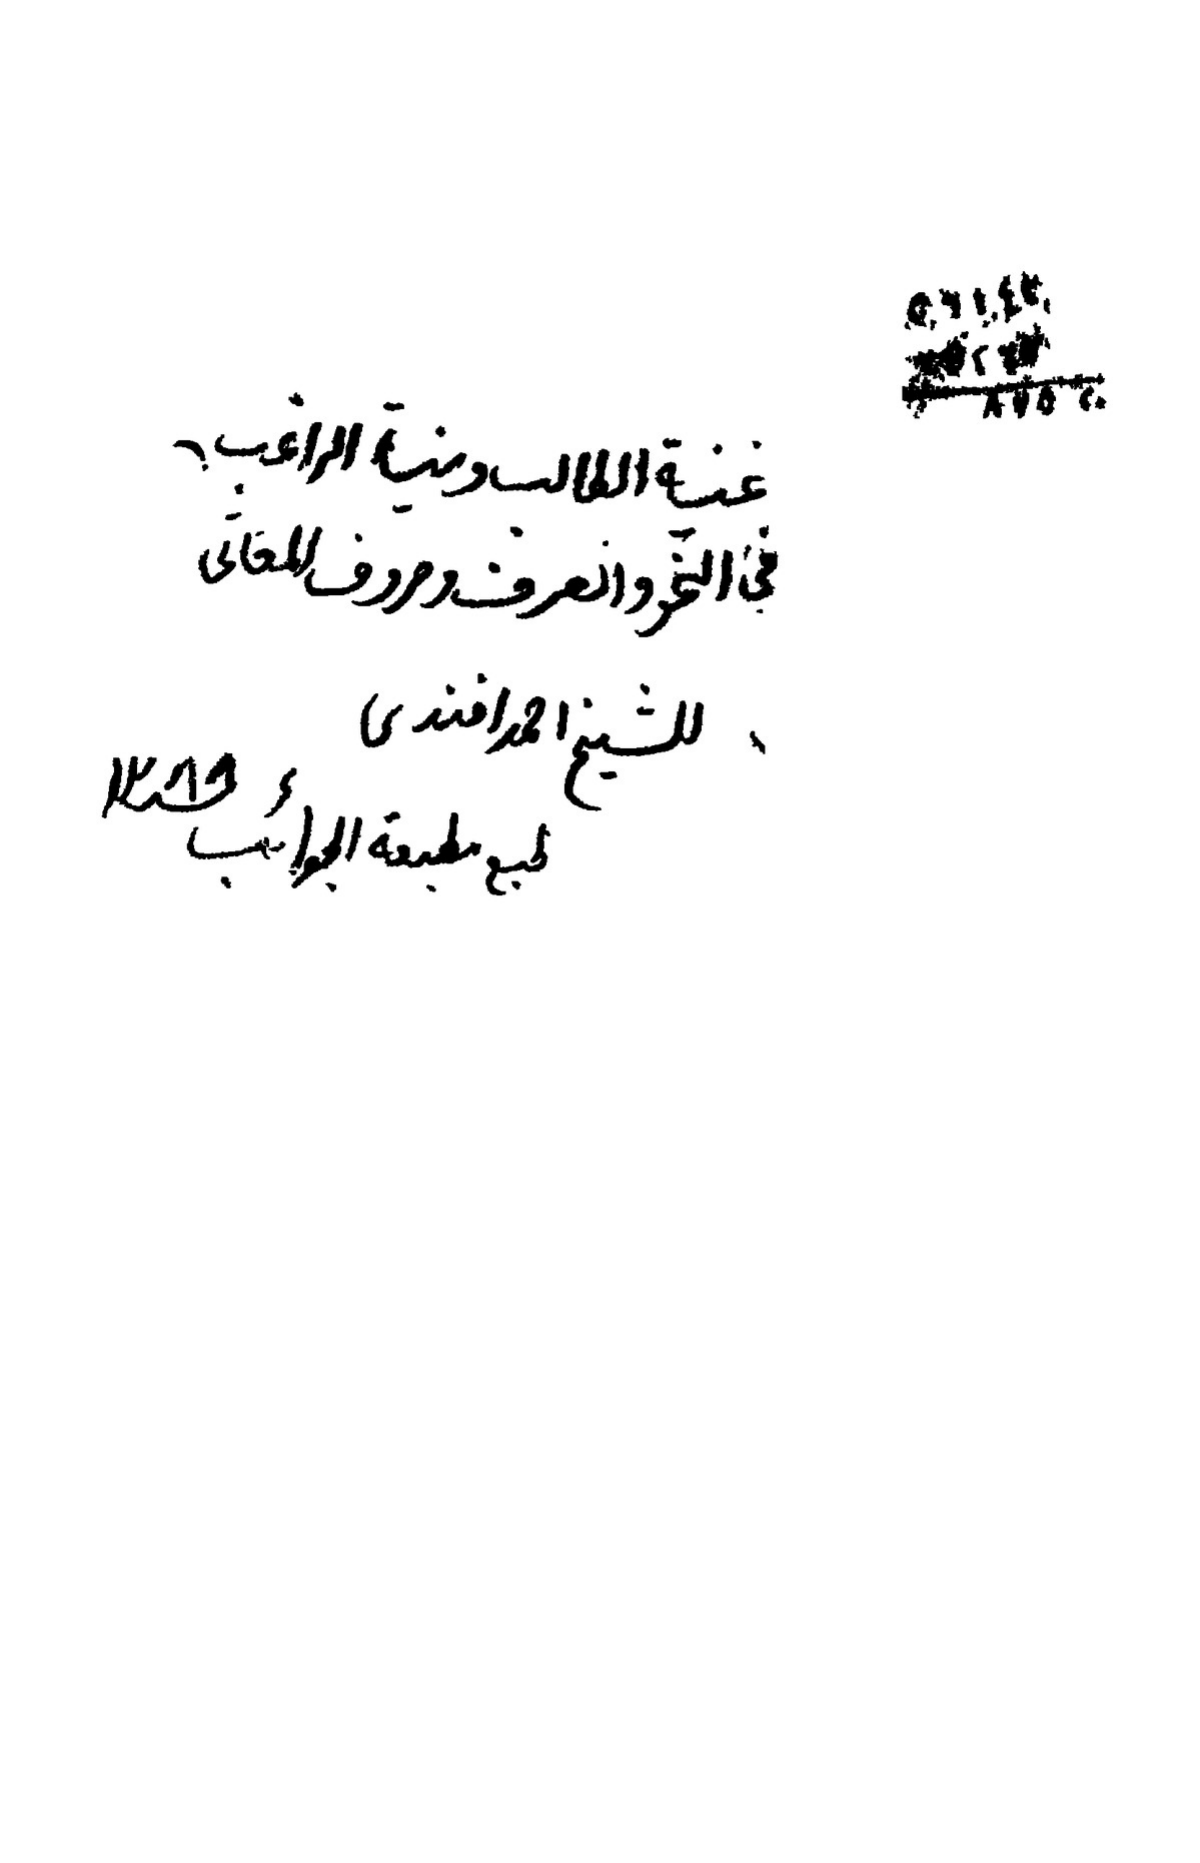 غنية الطالب ومنية الراغب
في النحو والصرف وحروف المعاني
للشيخ احمد افندى
طبع مطبعة الجوائب